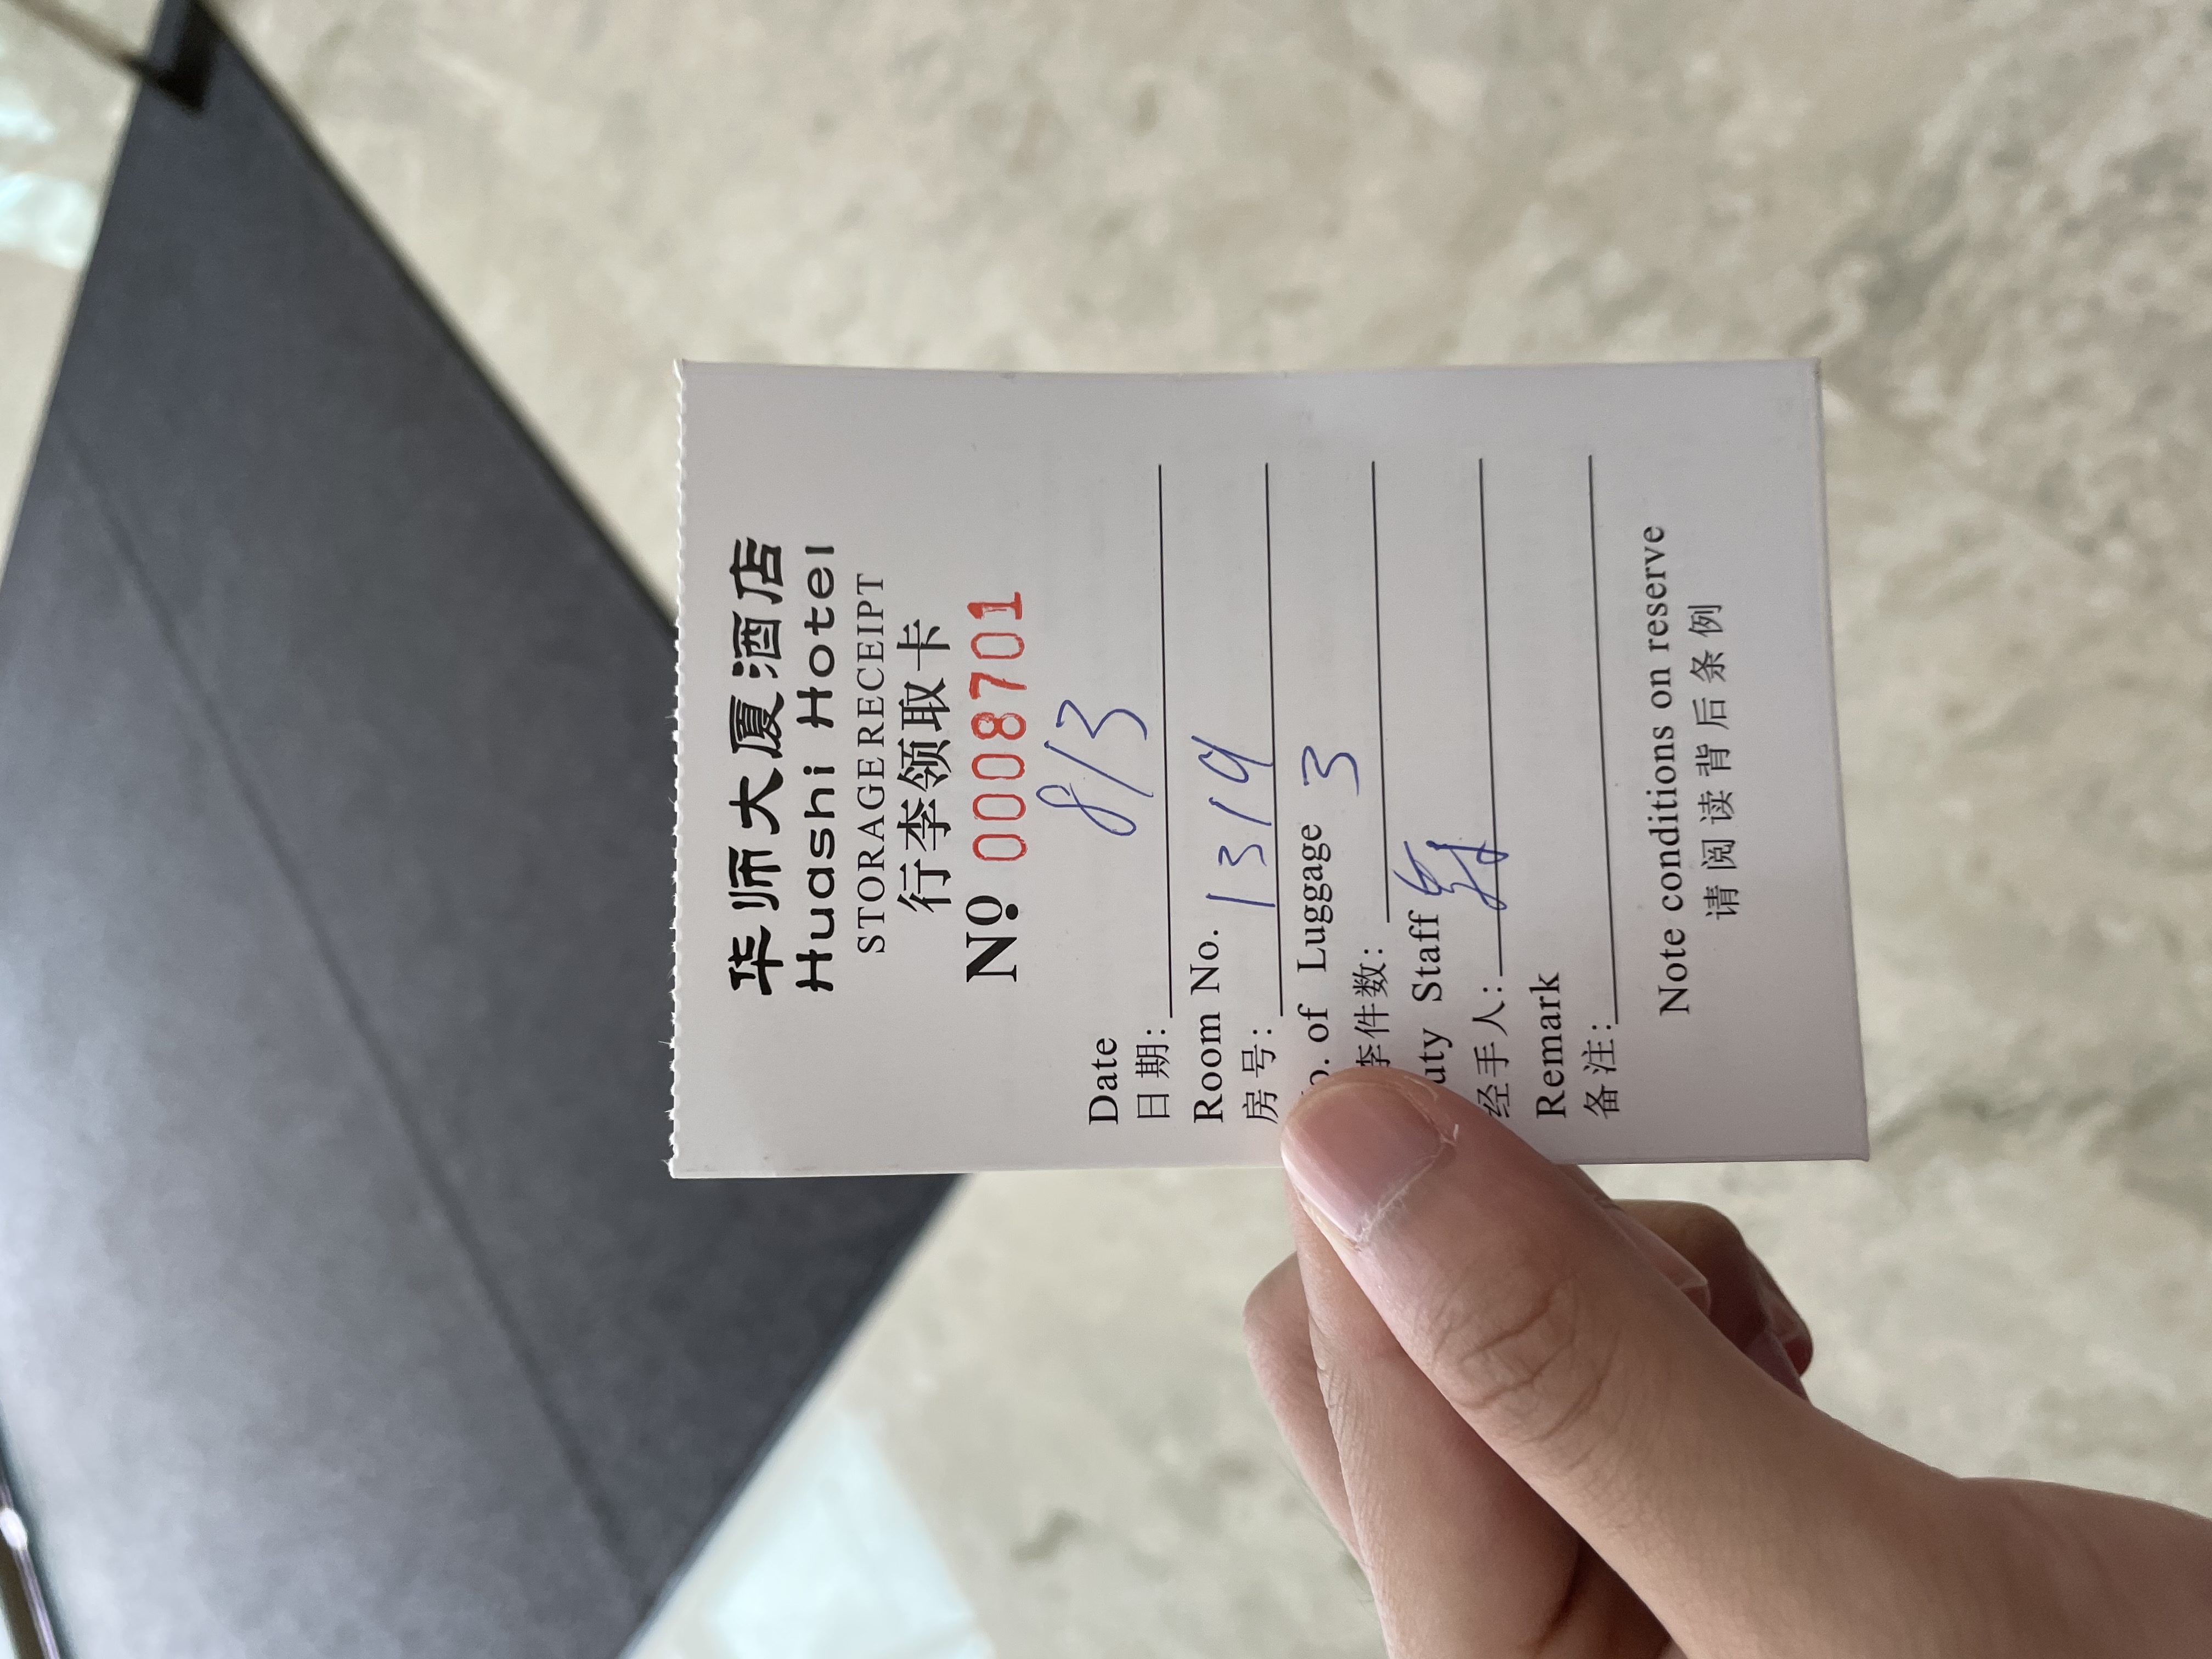 华师大厦酒店
Huashi Hotel
STORAGE RECEIPT
行李领取卡
No 0008701
Date 8/3
日期:
Room No. 1319
房号:
of Luggage 3
件数:
Staff
经手人:
Remark
备注:
Note conditions on reserve
请阅读背后条例